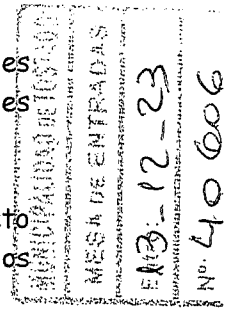 es
es
to
os
MUNICIPALIDAD DE TOSTADO
MESA DE ENTRADAS
13-12-23
Nº. 40606